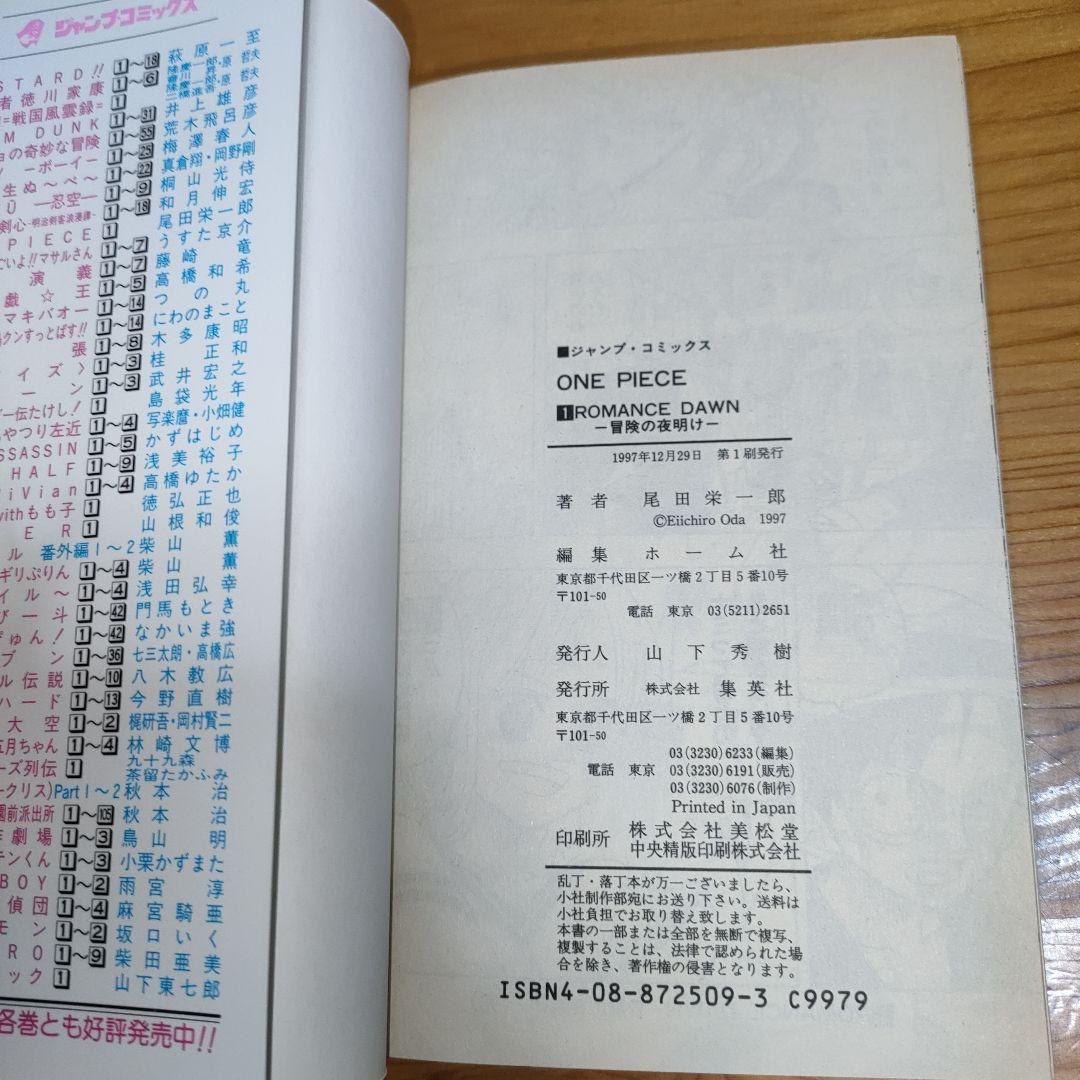 ジャンプ・コミックス
STARD!! 1〜18 萩原一至
者徳川家康 1〜6
=戦国風雲録= 1
M DUNK 1〜31 井上雄彦
ョの奇妙な冒険 1〜55 荒木飛呂彦
ィ ーボーイー 1〜25 梅澤春人
生ぬ〜べ〜 1〜22 真倉翔・岡野剛
Ü ―忍空― 1〜9 桐山光侍
剣心-明治剣客浪漫譚- 1〜18 和月伸宏
PIECE 1 尾田栄一郎
ごいよ!!マサルさん 1〜7 うすた京介
演義 1〜7 藤崎竜
戯☆王 1〜5 高橋和希
マキバオー 1〜14 つの丸
クンすっとばす!! 1〜14 にわのまこと
張 1〜8 木多康昭
イズ〉 1〜3 桂正和
ーン 1〜3 武井宏之
ー伝たけし! 1 島袋光年
やつり左近 1〜4 写楽麿・小畑健
SSASSIN 1〜5 かずはじめ
HALF 1〜9 浅美裕子
iVian 1〜4 高橋ゆたか
withもも子 1 徳弘正也
ER 1 山根和俊
ル 番外編1〜2 柴山薫
ギリぷりん 1〜4 柴山薫
イル〜 1〜4 浅田弘幸
び一斗 1〜42 門馬もとき
ぴゅん! 1〜42 なかいま強
ブン 1〜36 七三太朗・高橋広
ル伝説 1〜10 八木教広
ハード 1〜13 今野直樹
大空 1〜2 梶研吾・岡村賢二
五月ちゃん 1〜4 林崎文博
ーズ列伝 1 九十九森
茶留たかふみ
ークリス)Part1〜2 秋本治
園前派出所 1〜105 秋本治
劇場 1〜3 鳥山明
テンくん 1〜3 小栗かずまた
BOY 1〜2 雨宮淳
偵団 1〜4 麻宮騎亜
モン 1〜2 坂口いく
RO 1〜9 柴田亜美
ック 1 山下東七郎
各巻とも好評発売中!!
■ジャンプ・コミックス
ONE PIECE
1 ROMANCE DAWN
―冒険の夜明け―
1997年12月29日 第1刷発行
著者 尾田栄一郎
©Eiichiro Oda 1997
編集 ホーム社
東京都千代田区一ツ橋2丁目5番10号
〒101-50
電話 東京 03(5211)2651
発行人 山下秀樹
発行所 株式会社 集英社
東京都千代田区一ツ橋2丁目5番10号
〒101-50
03(3230)6233(編集)
電話 東京 03(3230)6191(販売)
03(3230)6076(制作)
Printed in Japan
印刷所 株式会社美松堂
中央精版印刷株式会社
乱丁・落丁本が万一ございましたら、
小社制作部宛にお送り下さい。送料は
小社負担でお取り替え致します。
本書の一部または全部を無断で複写、
複製することは、法律で認められた場
合を除き、著作権の侵害となります。
ISBN4-08-872509-3 C9979